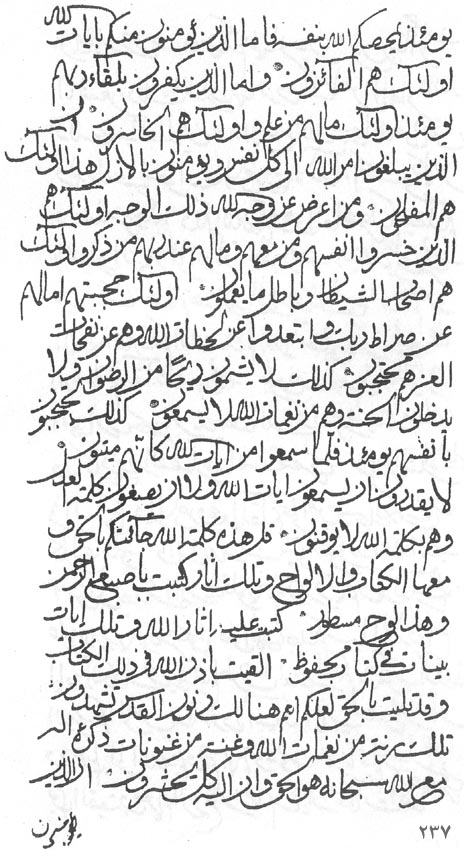 يومئذ يحصكم الله بنفسه فاما الذين يؤمنون منكم بايات الله
اولئك هم الفائزون واما الذين يكفرون بلقاء ربهم
يومئذ اولئك مالهم من علم واولئك هم الخاسرون ان
الذين يبلغون امر الله الى كل نفس ويومنون بالارل هذا اولئك
هم المفلحون ومن اعرض عن وجه الله ذلك الوجه اولئك هم
الذين خسروا انفسهم ومن معهم ومالهم عند ربهم من ذكر واولئك
هم اصحاب الشيطان وباطل ما يعملون اولئك حجبتهم امالهم
عن صراط ربك وابتعدوا عن لحظات الله وهم عن نفحات
العز هم محتجبون كذلك لا يشمون ريحا من الرضوان ولا
يدخلون الجنة وهم من نغمات الله لا يسمعون كذلك محتجبون
بانفسهم يومئذ فلما سمعوا من ايات الله كانهم ميتون
لا يقدرون ان يسمعون ايات الله ولا ان يصغون كلمة العدل
وهم بكلمة الله لا يوقنون قل هذه كلمة الله جائتكم بالحق و
معها الكتاب والالواح وتلك اثار كتبت باصبع الرحمن
وهذا لوح مسطور كتبت عليه اثار الله وتلك ايات
بينات في كتاب محفوظ القيت باذن الله في ذلك الكتاب
وقد تليت بالحق لعلكم انتم هنالك بنور القدس تشهدون
تلك رنة من نغمات الله وغنة من غنونات ذكره انه
مع الله سبحانه هو الحق وان اليه كل يحشرون ان الذين
٢٣٧